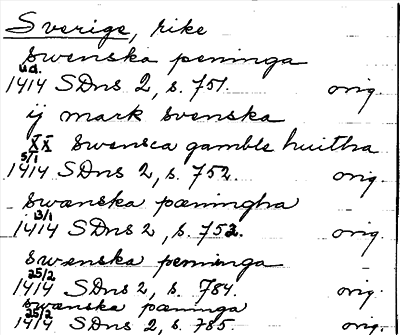 Sverige, rike
swenska peninga
u.d.
1414 SDns 2, s. 751. orig.
ij mark svenska
XX swensca gamble huitha
5/1
1414 SDns 2, s. 752. orig.
swænska pæningha
13/1
1414 SDns 2, s. 753. orig.
swenska penninga
25/2
1414 SDns 2, s. 784. orig.
swænska pæninga
25/2
1414 SDns 2, s. 785. orig.